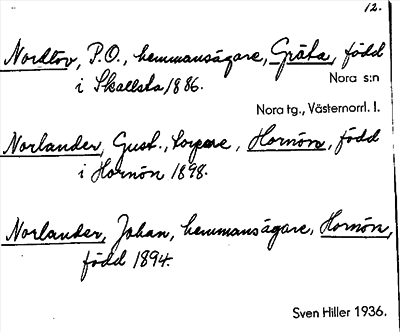 12.
Nordlöv, P.O., hemmansägare, Gräta, född
i Skallsta 1886.
Nora s:n
Nora tg., Västernorrl. l.
Norlander, Gust., torpare, Hornön, född
i Hornön 1898.
Norlander, Johan, hemmansägare, Hornön,
född 1894.
Sven Hiller 1936.